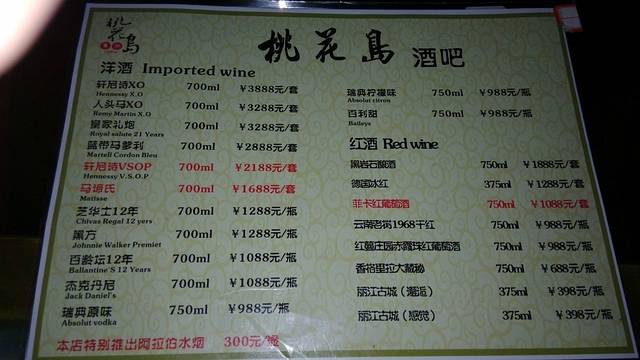 桃花島
桃花島 酒吧
洋酒 Imported wine
轩尼诗XO 700ml ￥3888元/套
Hennessy X.O
人头马XO 700ml ￥3288元/套
Remy Martin X.O
皇家礼炮 700ml ￥3288元/套
Royal salute 21 Years
蓝带马爹利 700ml ￥2888元/套
Martell Cordon Bleu
轩尼诗VSOP 700ml ￥2188元/套
Hennessy V.S.O.P
马谛氏 700ml ￥1688元/套
Matisse
芝华士12年 700ml ￥1288元/瓶
Chivas Regal 12 yers
黑方 700ml ￥1288元/瓶
Johnnie Walker Premiet
百龄坛12年 700ml ￥1088元/瓶
Ballantine'S 12 Years
杰克丹尼 700ml ￥1088元/瓶
Jack Daniel's
瑞典原味 750ml ￥988元/瓶
Absolut vodka
本店特别推出阿拉伯水烟 300元/壶
瑞典柠檬味 750ml ￥988元/瓶
Absolut citron
百利甜 750ml ￥988元/瓶
Baileys
红酒 Red wine
黑岩石酿酒 750ml ￥1888元/套
德国冰红 375ml ￥1288元/套
菲卡红葡萄酒 750ml ￥1088元/套
云南老树1968干红 750ml ￥988元/瓶
红磨庄园赤霞珠红葡萄酒 750ml ￥988元/瓶
香格里拉大藏秘 750ml ￥688元/瓶
丽江古城（邂逅） 375ml ￥398元/瓶
丽江古城（感觉） 375ml ￥398元/瓶